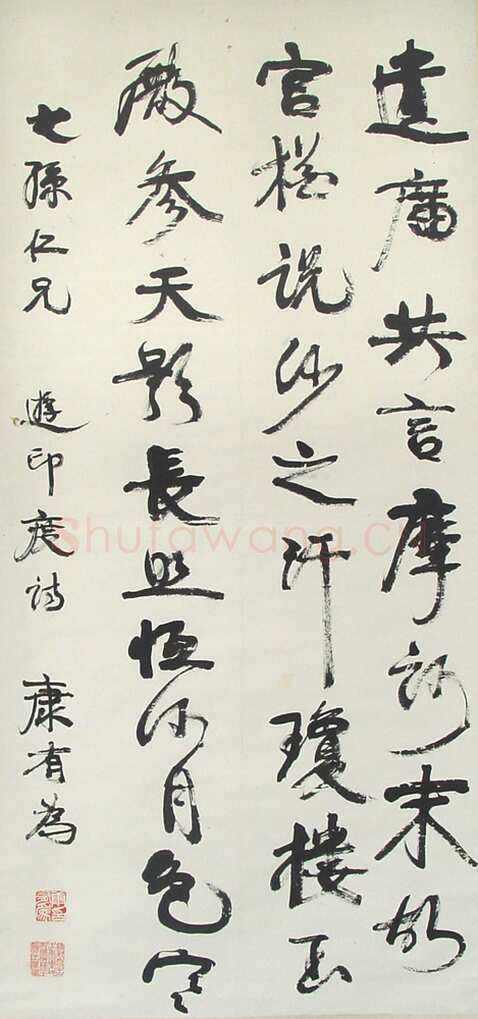 遺廟共言摩訶末故
宮猶說沙之汗瓊樓玉
殿參天影長照恆河月色寒
七孫仁兄 遊印度詩 康有為
Shufawang.cn